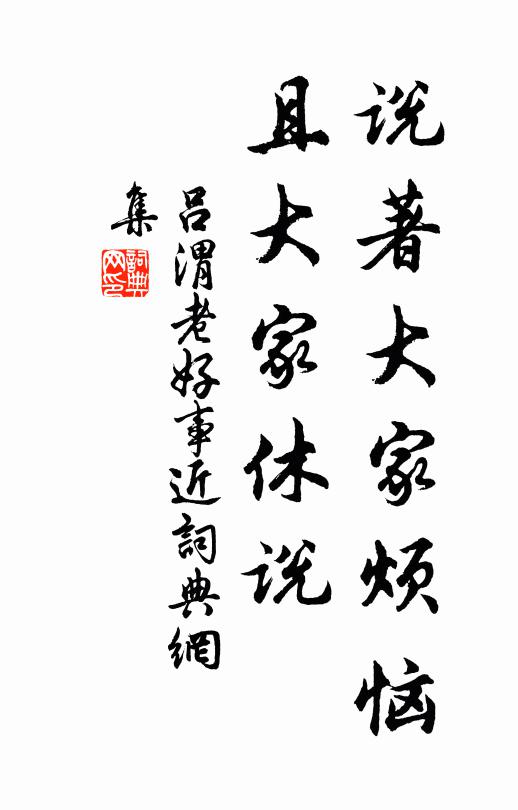 说著大家烦恼
且大家休说
吕渭老好事近詞典網
集
詞典
网印